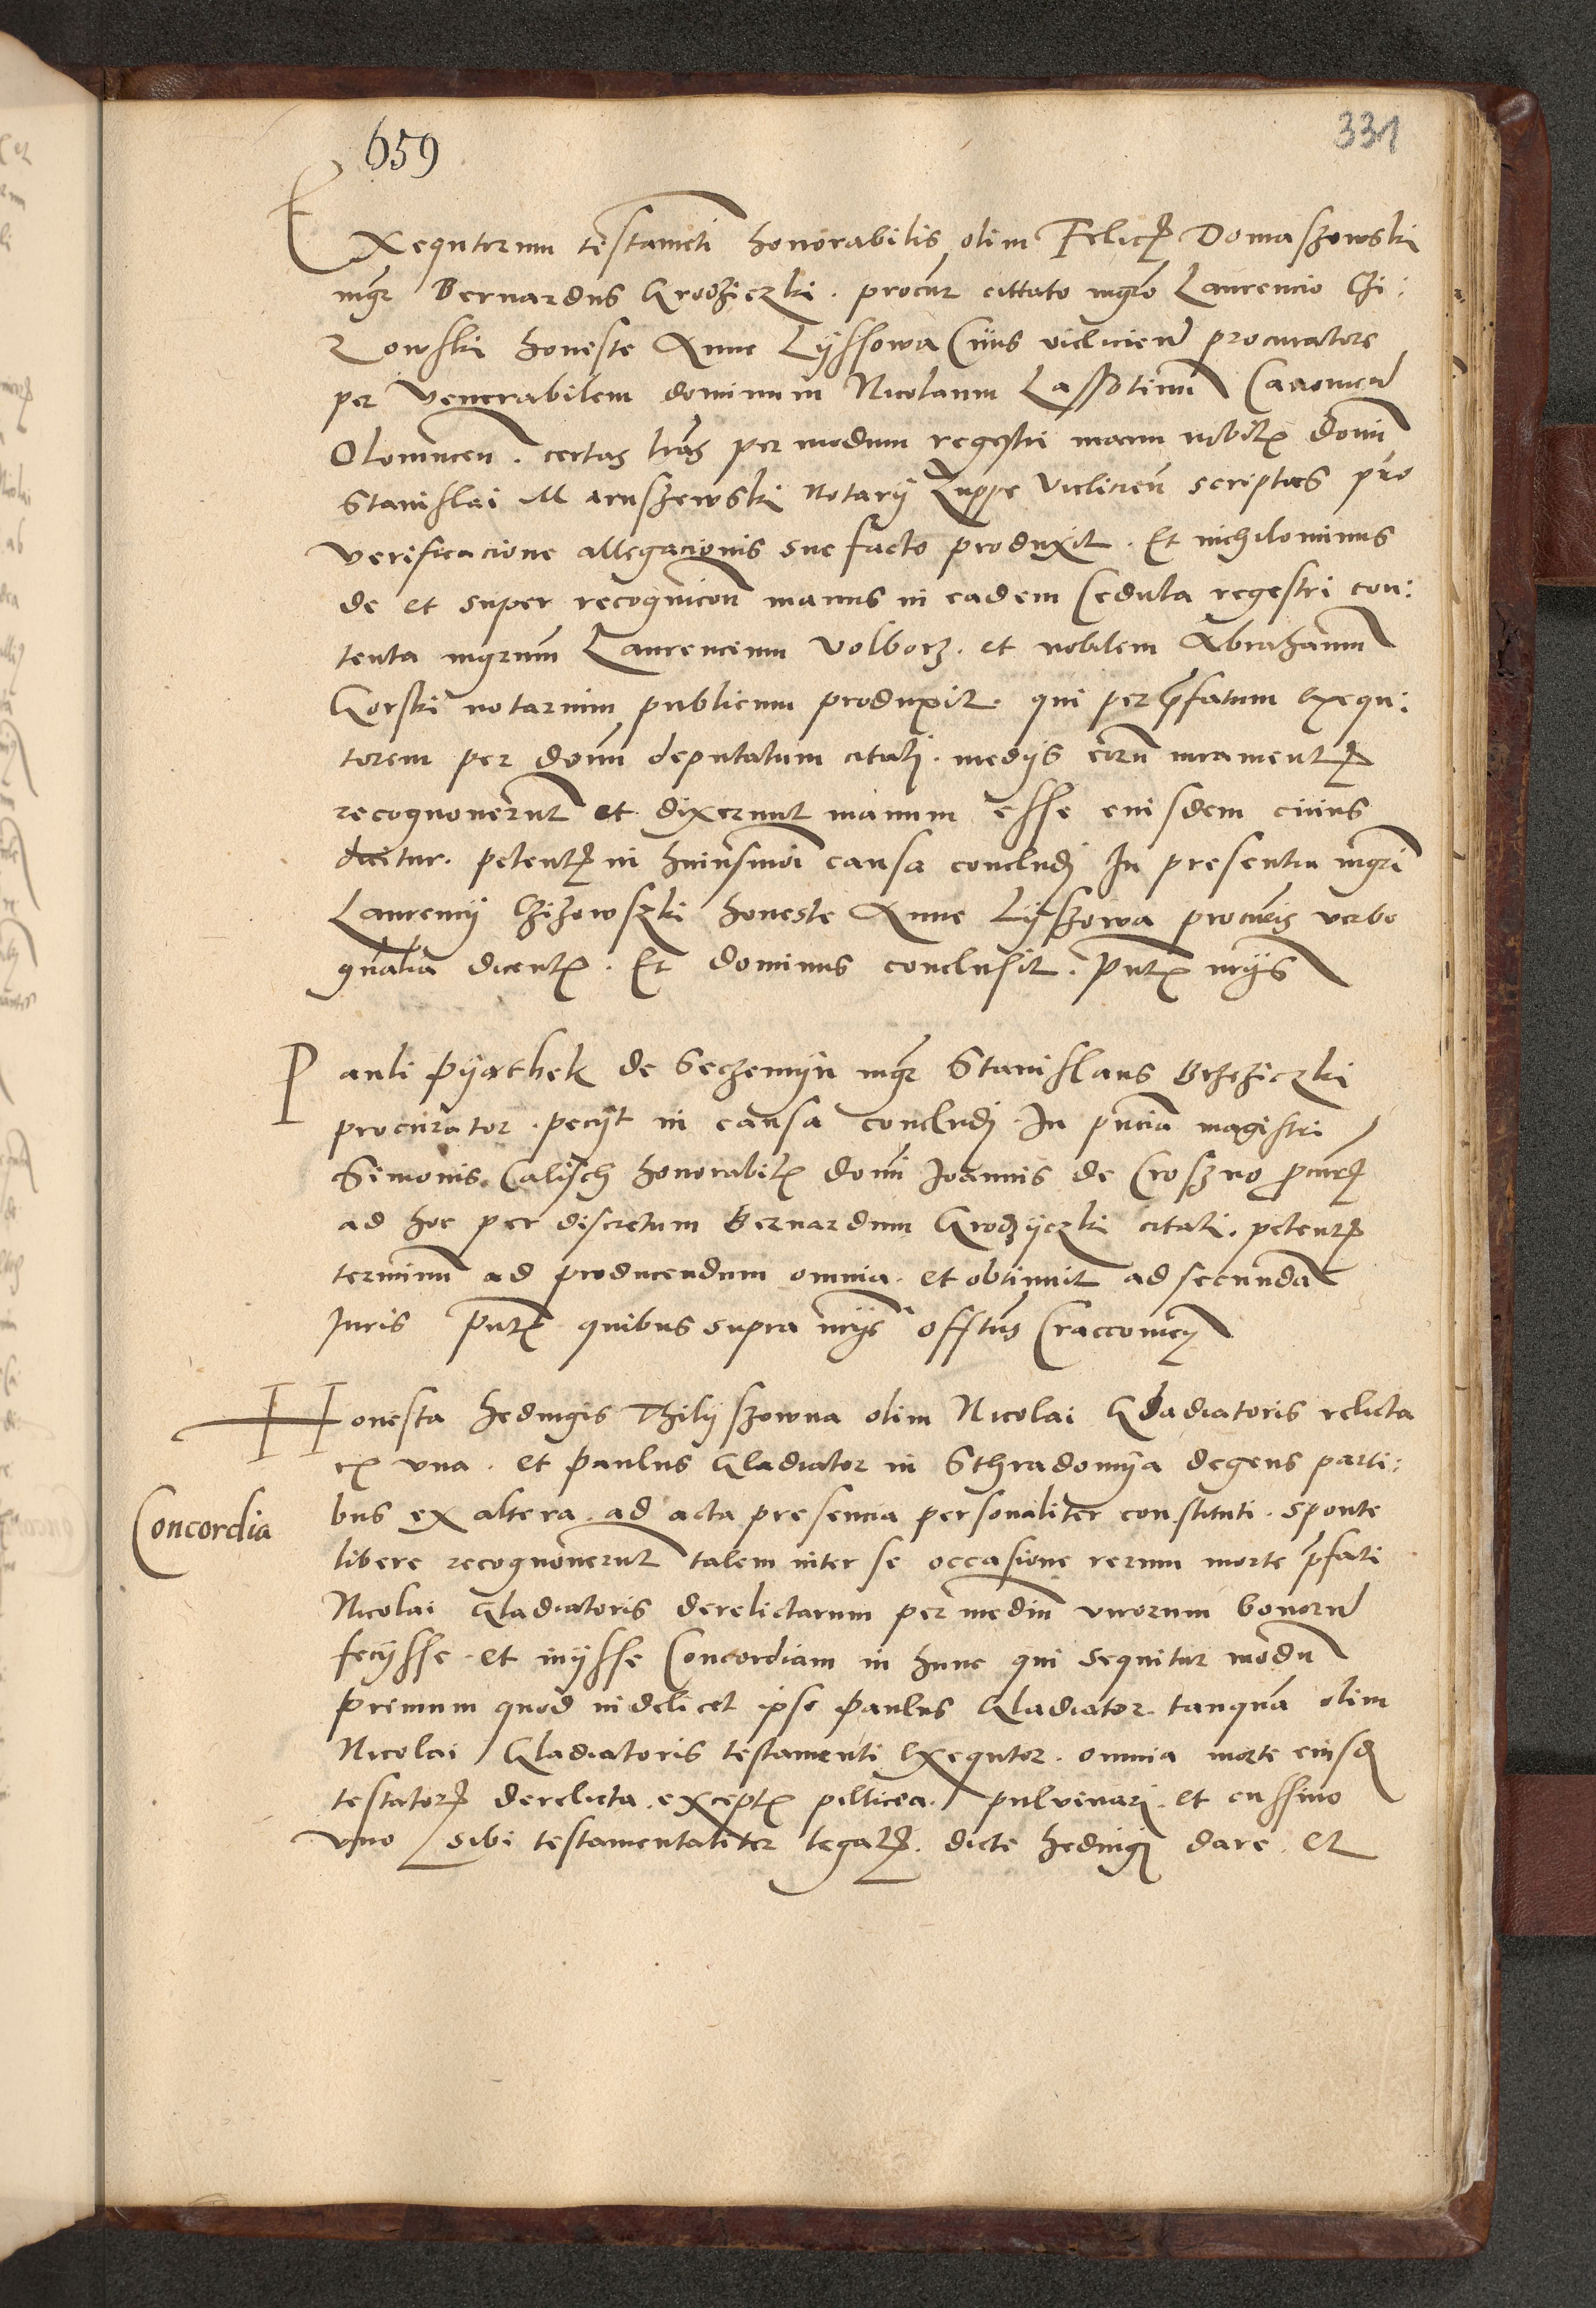 659
331
Exequtorum testameti honorabilis olim Felicis Domaszowski
mgr Bernardus Grodziczki . procur cittato mgro Laurencio Czi:
zowski honeste Anne Lyssowa Ciuis vieliciens procuratore
per Venerabilem dominum Nicolaum Lassotinum Canonicum
Olomucen . certas lras per modum regestri manu nobilis domi
Stanislai Maruszewski Notarij Zuppe Vielicien scriptas pro
verificacione allegacionis sue facto produxit . Et nichilominus
de et super recognicon manus in eadem Cedula regestri con:
tenta mgrum Laurencium Volborz . et nobilem Abrahamum
Gorski notarium publicum produxit . qui per pfatum exequ:
torem per domu deputatum citati . medijs eorum iuramentis
recognouerunt et dixerunt manum esse eiusdem cuius
dicitur . petentis in huiusmoi causa concludi In presentia mgri
Laurencij Czizowszki honeste Anne Lyszowa procuris verbo
gnalia dicentis . Et dominus conclusit . Pntibus mgris
Pauli Pyathek de Seczemijn mgr Stanislaus Brzeziczki
procurator . pecijt in causa concludi . In pncia magistri
Simonis Calisch honorabilis domi Joannis de Croszno procuris
ad hoc per discretum Bernardum Grodzijczki citati . petentis
terminum ad producendum omnia . et obtinuit ad secundam
Juris Pntibus quibus supra mgris offitus Craccouien
Honesta hedvigis Thilij szowna olim Nicolai Gladiatoris relicta
ex vna . et Paulus Gladiator in Sthradomija degens parti:
Concordia
bus ex altera . ad acta presencia personaliter constituti . sponte
libere recognouerunt talem inter se occasione rerum morte pfati
Nicolai Gladiatoris derelictarum per medium virorum bonorum
fecijsse . et inijsse Concordiam in hunc qui sequitur modum
Primum quod videlicet ipse Paulus Gladiator . tanquam olim
Nicolai Gladiatoris testamenti exequtor . omnia morte eiusdem
testatoris derelicta . exceptis pellicea . pulvinari . et cussino
vno sibi testamentaliter legatis . dicte hedvigi dare . et